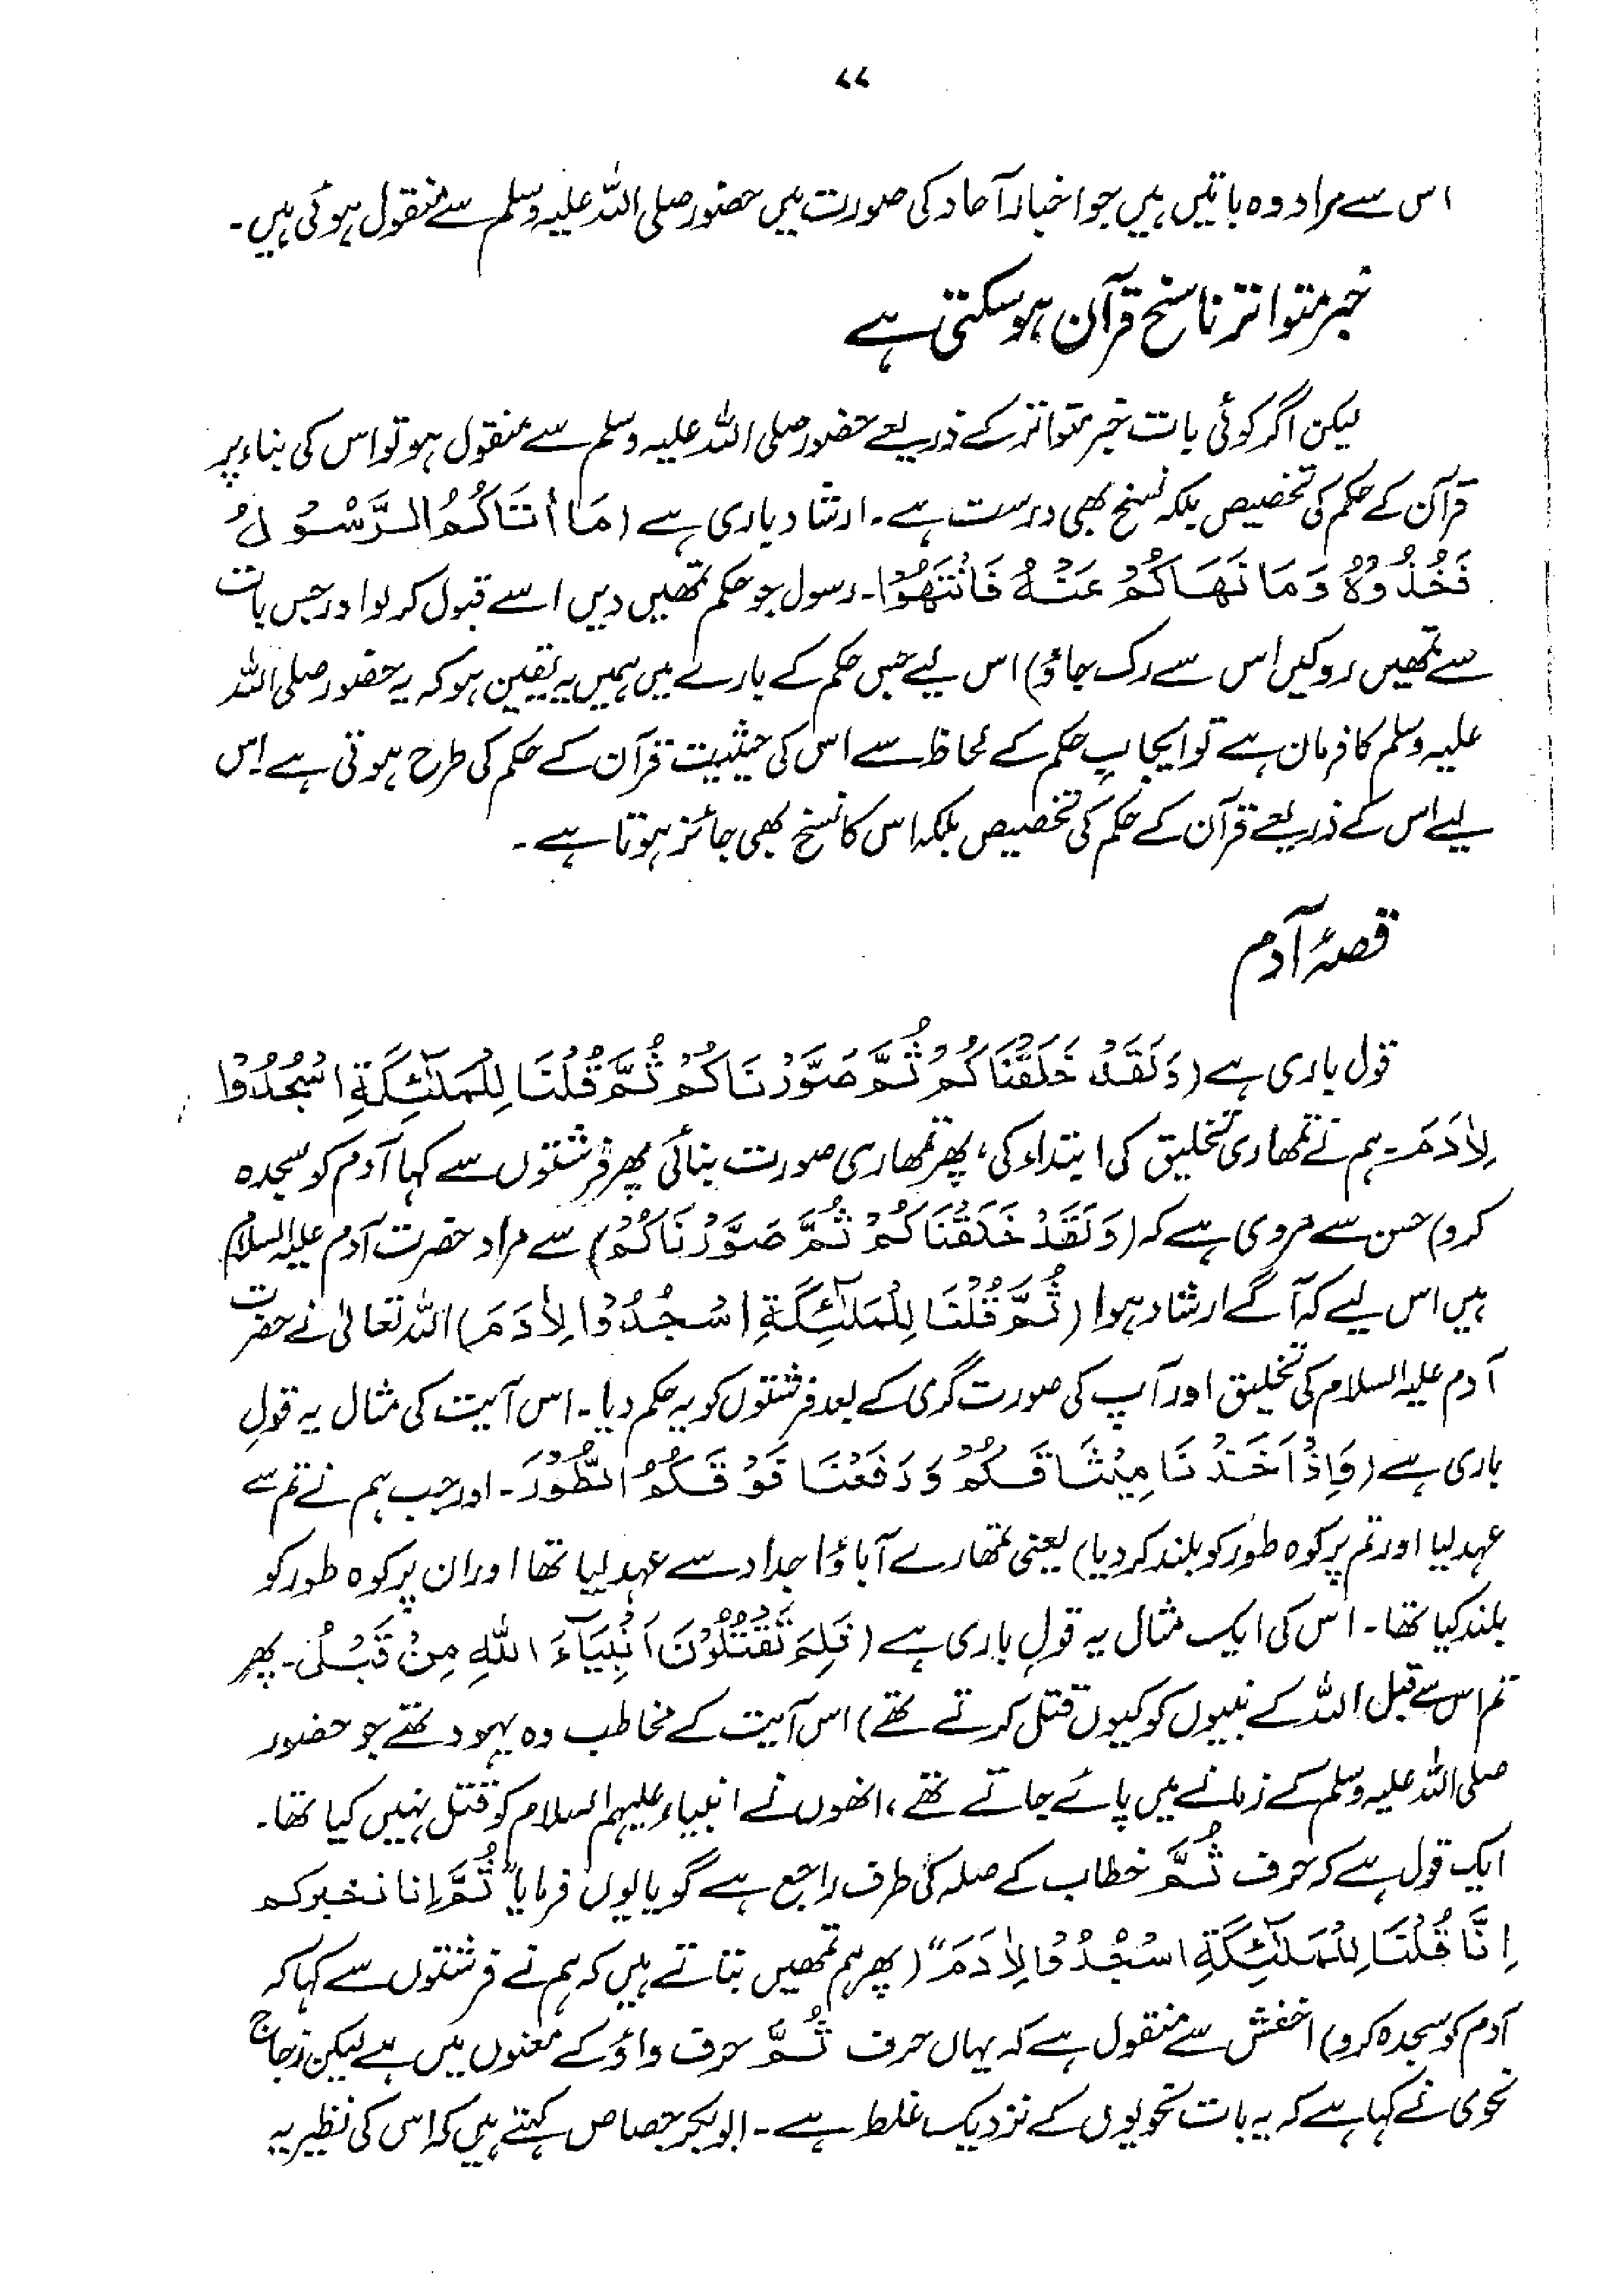 ۷۷
اس سے مراد وہ باتیں ہیں جو اخبار آحاد کی صورت میں حضور صلی اللہ علیہ وسلم سے منقول ہوئی ہیں۔
خبر متواتر ناسخ قرآن ہوسکتی ہے
لیکن اگر کوئی بات خبر متواتر کے ذریعے حضور صلی اللہ علیہ وسلم سے منقول ہو تو اس کی بناء پر
قرآن کے حکم کی تخصیص بلکہ نسخ بھی درست ہے۔ ارشاد باری ہے (مَا أَتَاكُمُ الرَّسُوْلُ
فَخُذُوْهُ وَمَا نَهَاكُمْ عَنْهُ فَانْتَهُوْا۔ رسول جو حکم تمھیں دیں اسے قبول کر لو اور جس بات
سے تمھیں روکیں اس سے رک جاؤ) اس لیے جس حکم کے بارے میں ہمیں یہ یقین ہو کہ یہ حضور صلی اللہ
علیہ وسلم کا فرمان ہے تو ایجابِ حکم کے لحاظ سے اس کی حیثیت قرآن کے حکم کی طرح ہوتی ہے اس
لیے اس کے ذریعے قرآن کے حکم کی تخصیص بلکہ اس کا نسخ بھی جائز ہوتا ہے۔
قصۂ آدم
قول باری ہے (وَلَقَدْ خَلَقْنَاكُمْ ثُمَّ صَوَّرْنَاكُمْ ثُمَّ قُلْنَا لِلْمَلٰٓئِكَةِ اسْجُدُوْا
لِاٰدَمَ۔ ہم نے تمھاری تخلیق کی ابتداء کی، پھر تمھاری صورت بنائی پھر فرشتوں سے کہا آدم کو سجدہ
کرو) حسن سے مروی ہے کہ (وَلَقَدْ خَلَقْنَاكُمْ ثُمَّ صَوَّرْنَاكُمْ) سے مراد حضرت آدم علیہ السلام
ہیں اس لیے کہ آگے ارشاد ہوا (ثُمَّ قُلْنَا لِلْمَلٰٓئِكَةِ اسْجُدُوْا لِاٰدَمَ) اللہ تعالیٰ نے حضرت
آدم علیہ السلام کی تخلیق اور آپ کی صورت گری کے بعد فرشتوں کو یہ حکم دیا۔ اس آیت کی مثال یہ قولِ
باری ہے (وَاِذْ اَخَذْنَا مِيْثَاقَكُمْ وَرَفَعْنَا فَوْقَكُمُ الطُّوْرَ۔ اور جب ہم نے تم سے
عہد لیا اور تم پر کوہ طور کو بلند کر دیا) یعنی تمھارے آباؤ اجداد سے عہد لیا تھا اور ان پر کوہ طور کو
بلند کیا تھا۔ اس کی ایک مثال یہ قولِ باری ہے (فَلِمَ تَقْتُلُوْنَ اَنْبِيَآءَ اللهِ مِنْ قَبْلُ۔ پھر
تم اس سے قبل اللہ کے نبیوں کو کیوں قتل کرتے تھے) اس آیت کے مخاطب وہ یہود تھے جو حضور
صلی اللہ علیہ وسلم کے زمانے میں پائے جاتے تھے، انھوں نے انبیاء علیہم السلام کو قتل نہیں کیا تھا۔
ایک قول ہے کہ حرف ثُمَّ خطاب کے صلہ کی طرف راجع ہے گویا یوں فرمایا "ثُمَّ إنا نخبركم
اِنَّا قُلْنَا لِلْمَلٰٓئِكَةِ اسْجُدُوْا لِاٰدَمَ" (پھر ہم تمھیں بتاتے ہیں کہ ہم نے فرشتوں سے کہا کہ
آدم کو سجدہ کرو) اخفش سے منقول ہے کہ یہاں حرف ثُمَّ حرف واؤ کے معنوں میں ہے لیکن زجاج
نحوی نے کہا ہے کہ یہ بات نحویوں کے نزدیک غلط ہے۔ ابوبکر جصاص کہتے ہیں کہ اس کی نظیر یہ